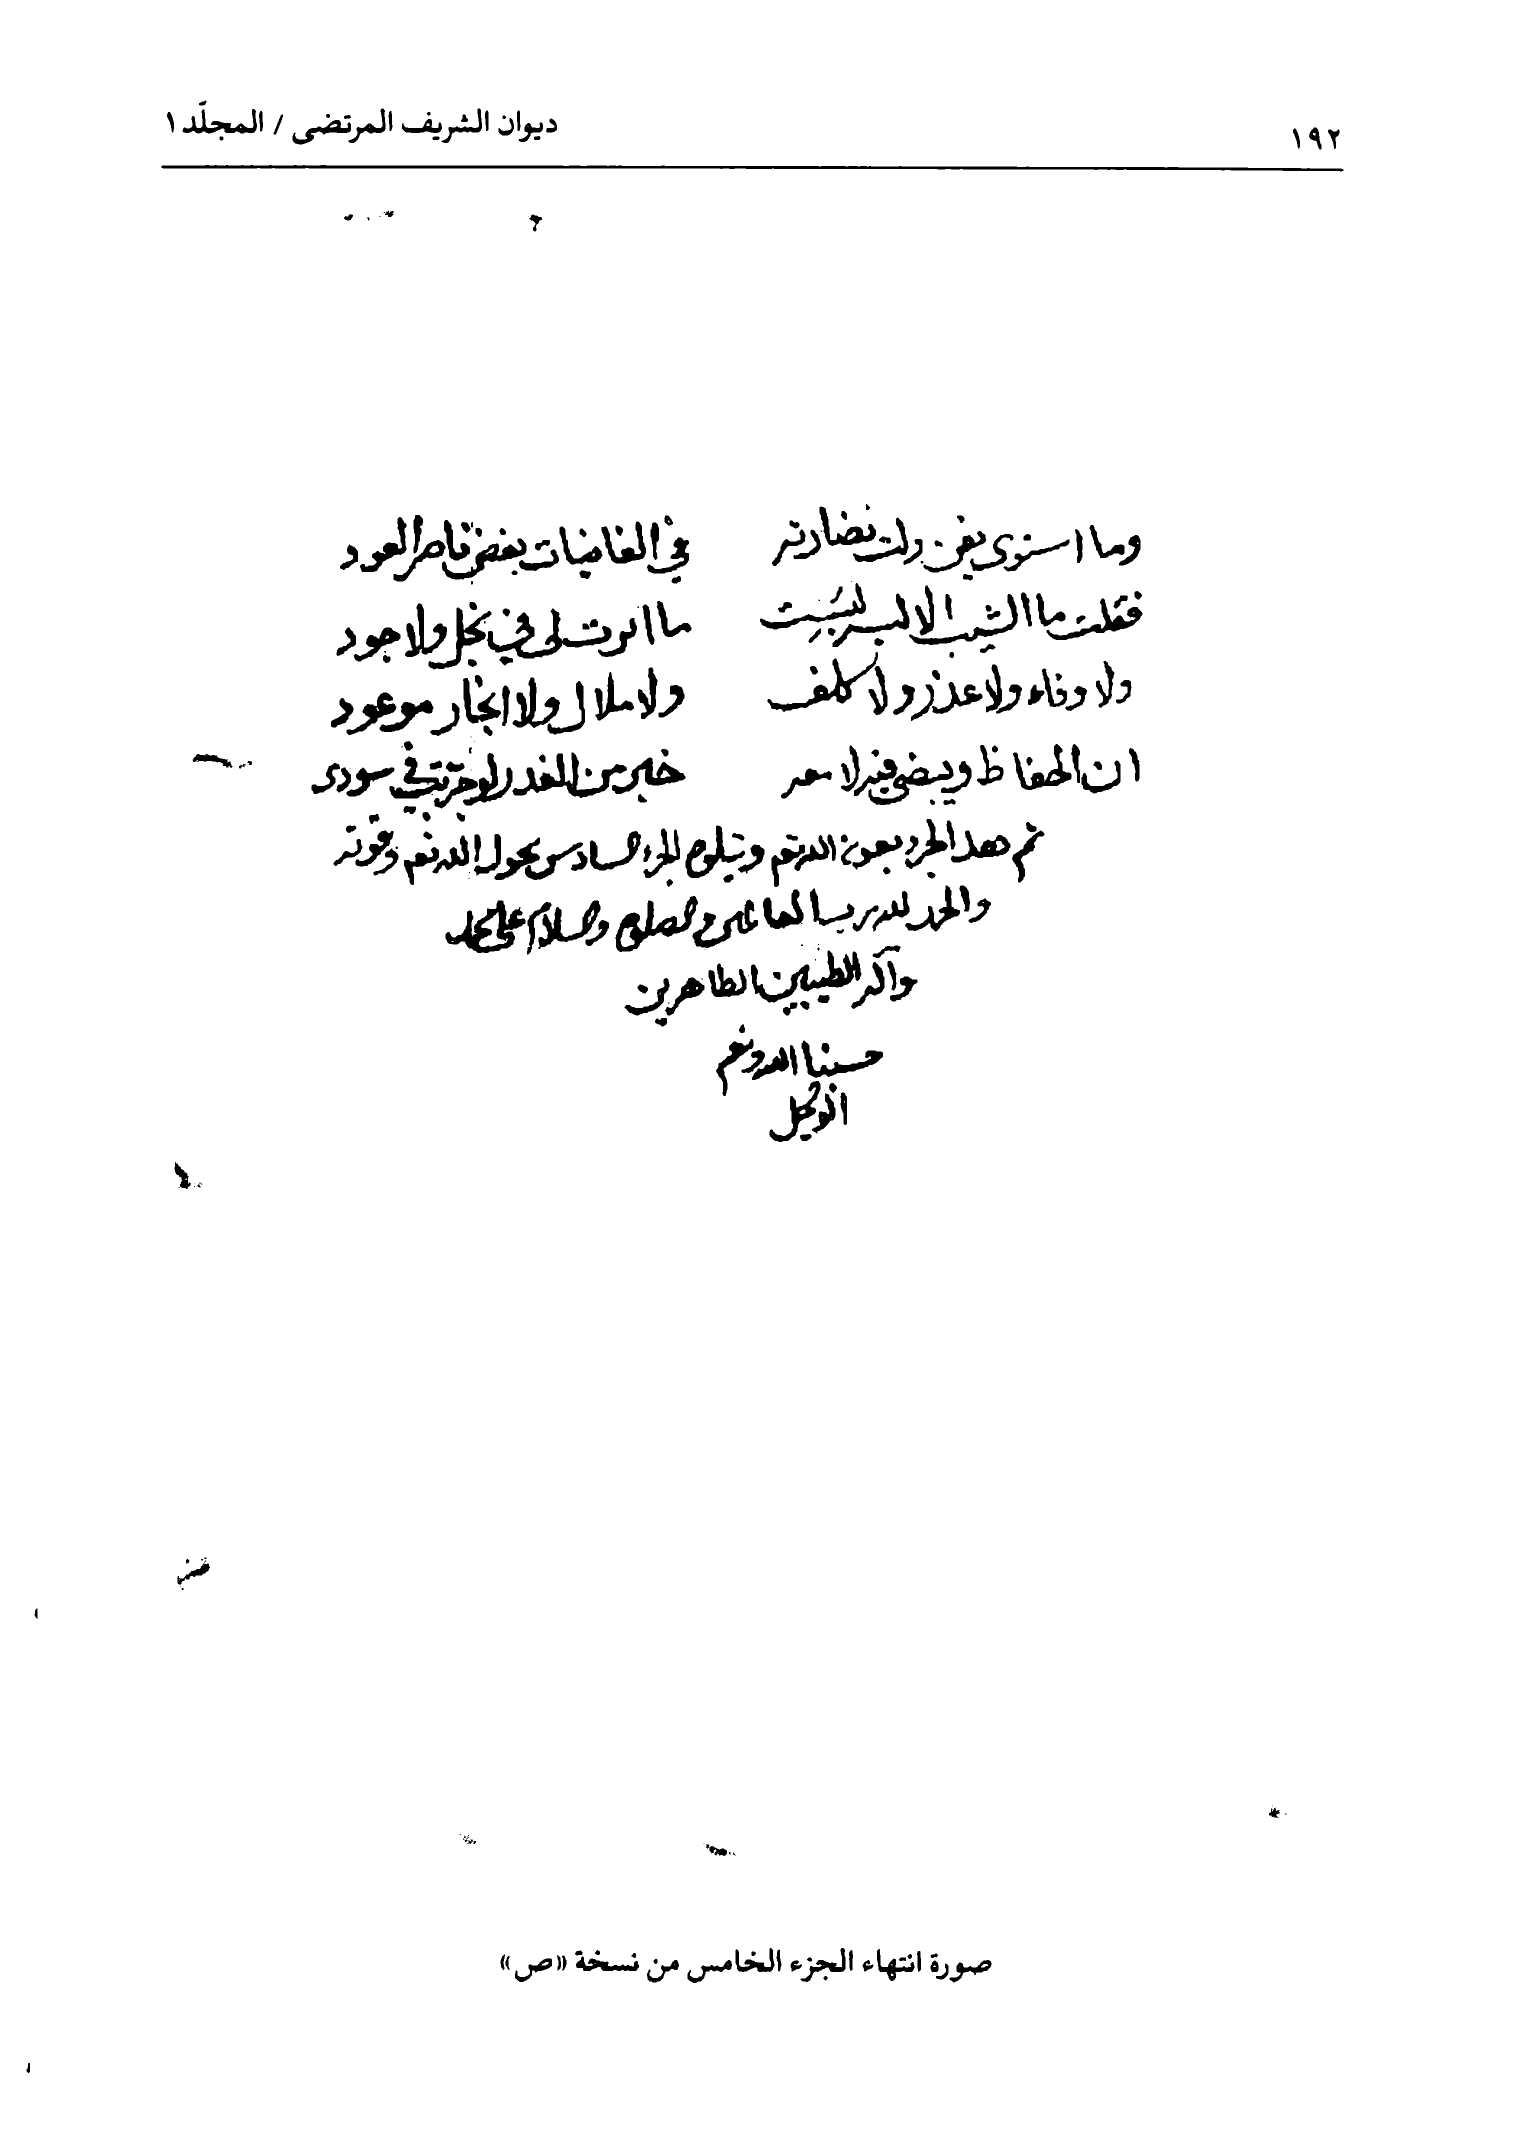 ١٩٢ ديوان الشريف المرتضى / المجلّد ١
وما استوى يفن ولت نضارته في الغانيات بغض ناضر العود
فقلت ما الشيب الا لبسة لبست ما اثرت لي في بخل ولا جود
ولا وفاء ولا عذر ولا كلف ولا ملال ولا انجاز موعود
ان الحفاظ وبيضي فيه لامعه خير من الغدر لو جربت في سودى
تم هذا الجزء بعون الله تعم ويتلوه الجزء السادس بحول الله تعم وقوته
والحمد لله رب العالمين والصلوة والسلام على محمد
وآله الطيبين الطاهرين
حسبنا الله ونعم
الوكيل
صورة انتهاء الجزء الخامس من نسخة «ص»